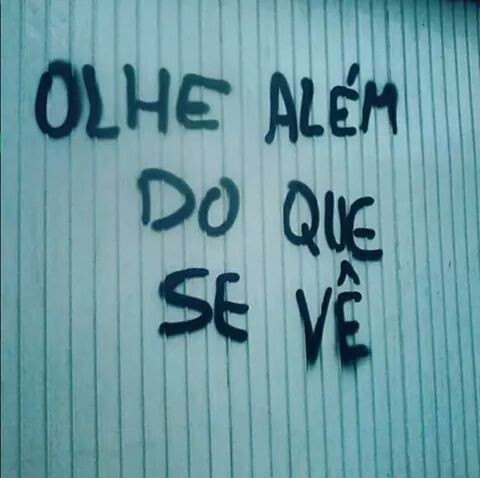 OLHE ALÉM
DO QUE
SE VÊ